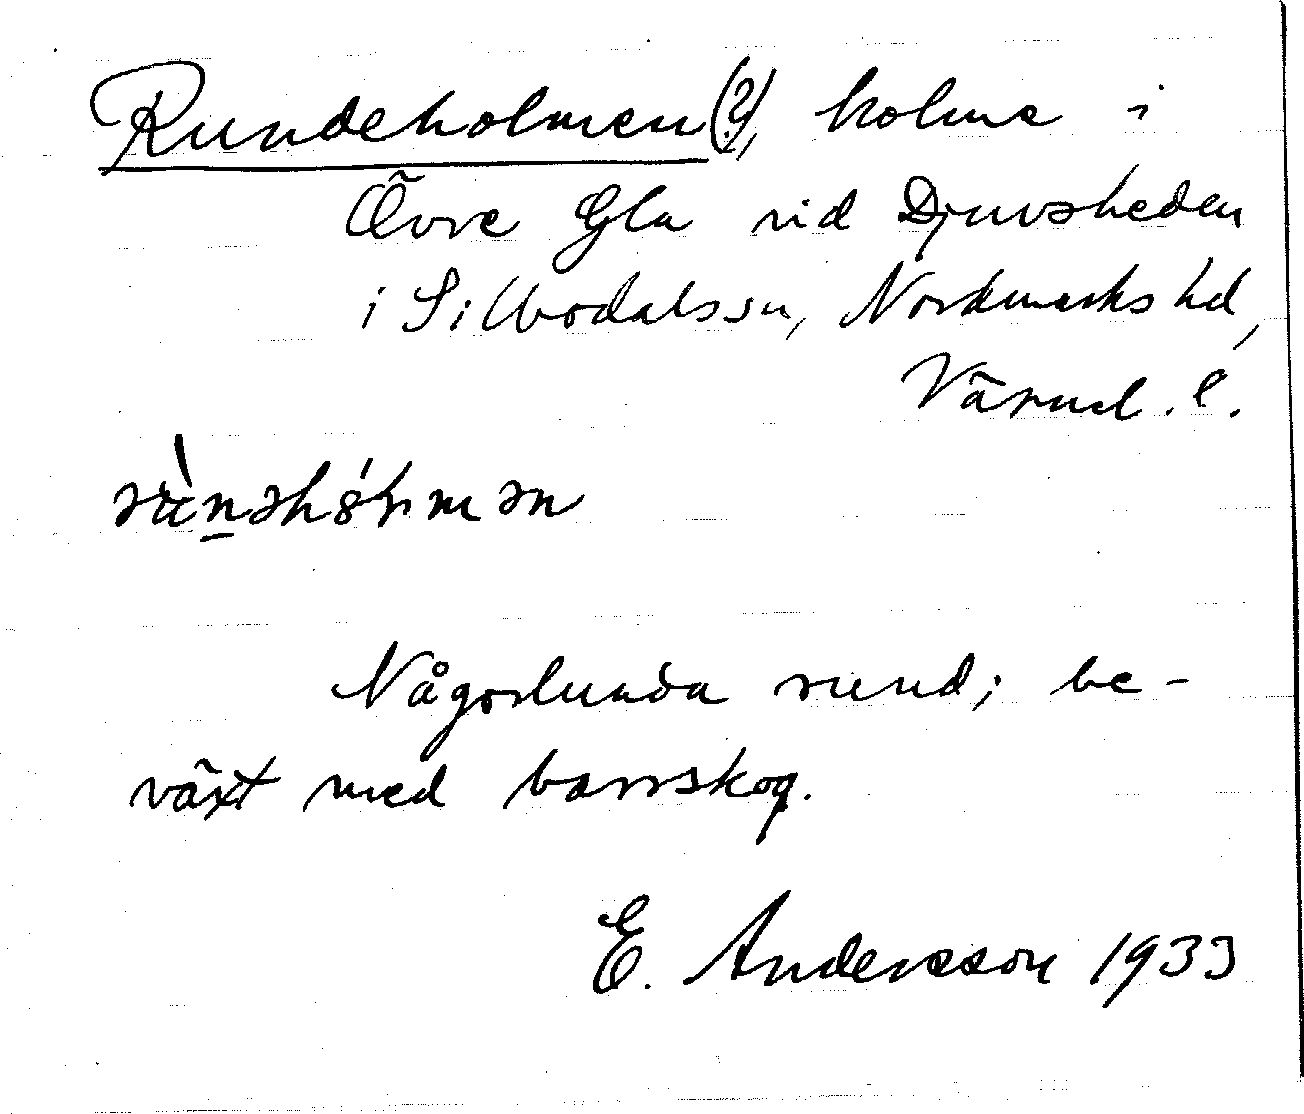 Rundeholmen (?), holme i
Övre Gla vid Djuvsheden
i Silbodals sn, Nordmarks hd,
Värml. l.
Någorlunda rund; be-
växt med barrskog.
E. Andersson 1933